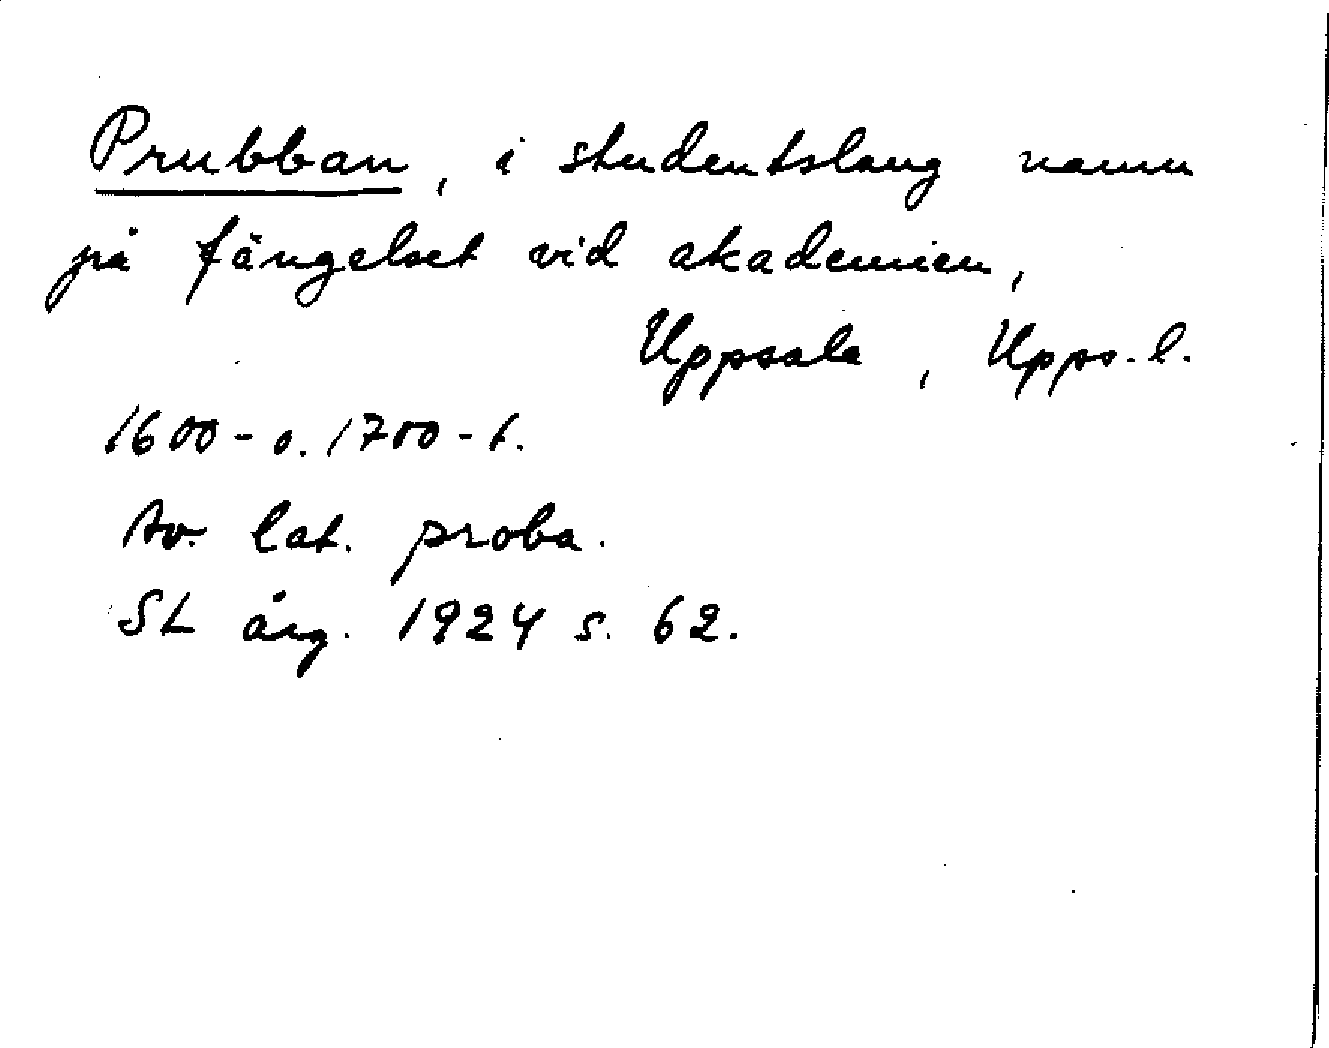 Prubban, i studentslang namn
på fängelset vid akademien,
Uppsala, Upps. l.
1600- o. 1700-t.
Av. lat. proba.
SL årg. 1924 s. 62.